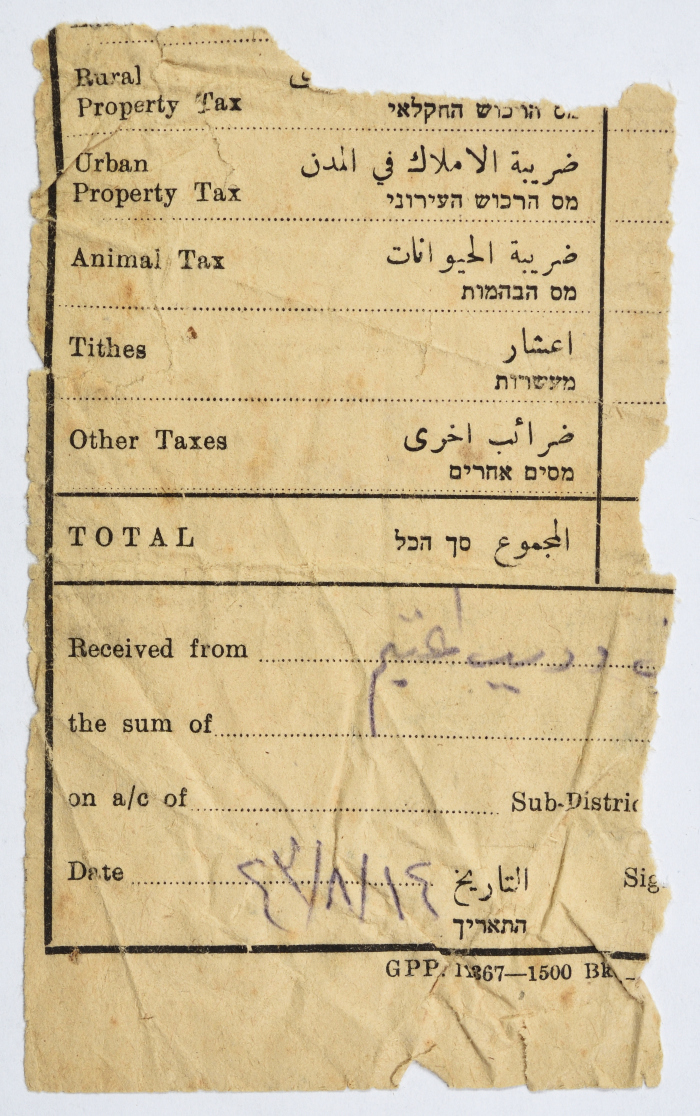 Rural
Property Tax מס הרכוש החקלאי
Urban ضريبة الاملاك في المدن
Property Tax מס הרכוש העירוני
Animal Tax ضريبة الحيوانات
מס הבהמות
Tithes اعشار
מעשרות
Other Taxes ضرائب اخرى
מסים אחרים
TOTAL المجموع סך הכל
Received from
the sum of
on a/c of Sub-Distric
Date التاريخ Sig
התאריך
GPP. 1500 Bk